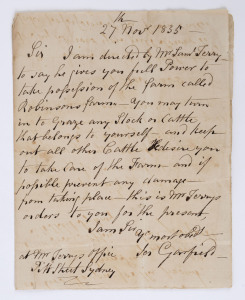 27th Novr 1835
Sir I am directed by Mr Saml Terry
to say he gives you full Power to
take possession of the Farm called
Robinsons Farm – You may turn
in to Graze any Stock or Cattle
that belongs to yourself and keep
out all other Cattle desires you
to take Care of the Farm and if
possible prevent any damage
from taking place – this is Mr Terrys
orders to you for the present
I am Sir
Yr most obdt
at Mr Terrys Office Jos Garfield
Pitt Street Sydney